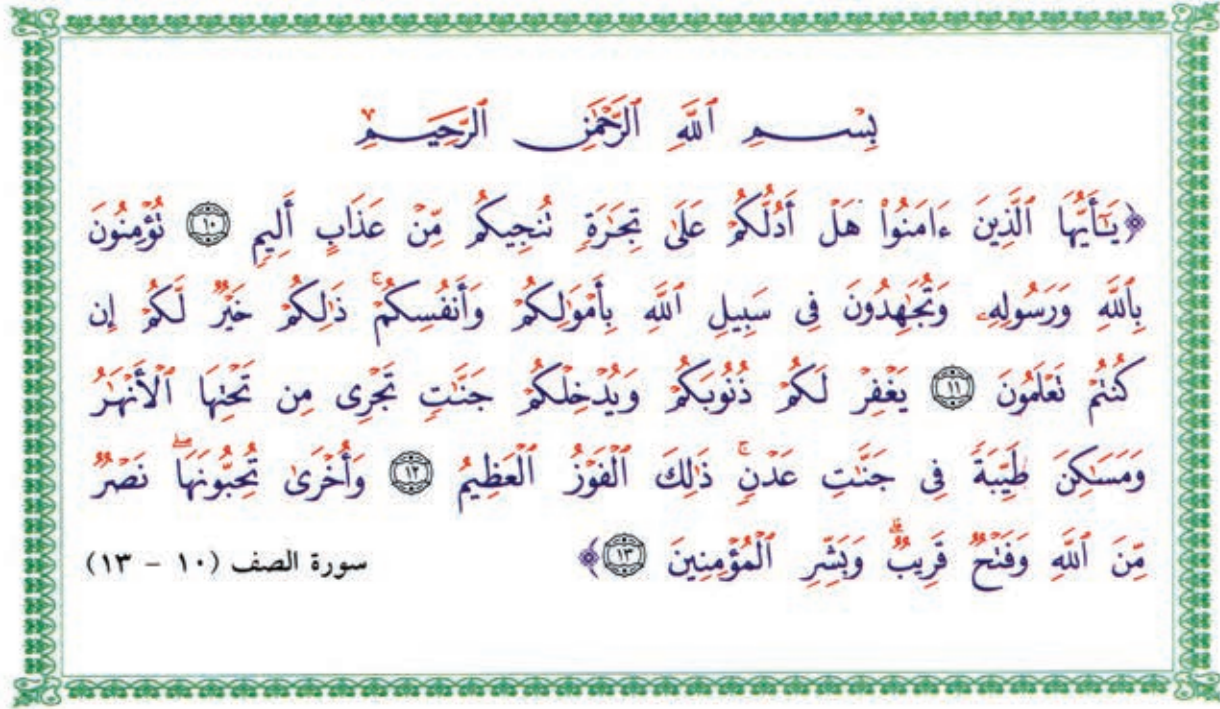 بِسْمِ ٱللَّهِ ٱلرَّحْمَٰنِ ٱلرَّحِيمِ
﴿يَٰٓأَيُّهَا ٱلَّذِينَ ءَامَنُوا۟ هَلْ أَدُلُّكُمْ عَلَىٰ تِجَٰرَةٍ تُنجِيكُم مِّنْ عَذَابٍ أَلِيمٍ ١٠ تُؤْمِنُونَ
بِٱللَّهِ وَرَسُولِهِۦ وَتُجَٰهِدُونَ فِى سَبِيلِ ٱللَّهِ بِأَمْوَٰلِكُمْ وَأَنفُسِكُمْ ۚ ذَٰلِكُمْ خَيْرٌ لَّكُمْ إِن
كُنتُمْ تَعْلَمُونَ ١١ يَغْفِرْ لَكُمْ ذُنُوبَكُمْ وَيُدْخِلْكُمْ جَنَّٰتٍ تَجْرِى مِن تَحْتِهَا ٱلْأَنْهَٰرُ
وَمَسَٰكِنَ طَيِّبَةً فِى جَنَّٰتِ عَدْنٍ ۚ ذَٰلِكَ ٱلْفَوْزُ ٱلْعَظِيمُ ١٢ وَأُخْرَىٰ تُحِبُّونَهَا ۖ نَصْرٌ
مِّنَ ٱللَّهِ وَفَتْحٌ قَرِيبٌ ۗ وَبَشِّرِ ٱلْمُؤْمِنِينَ ١٣﴾ سورة الصف (١٠ - ١٣)